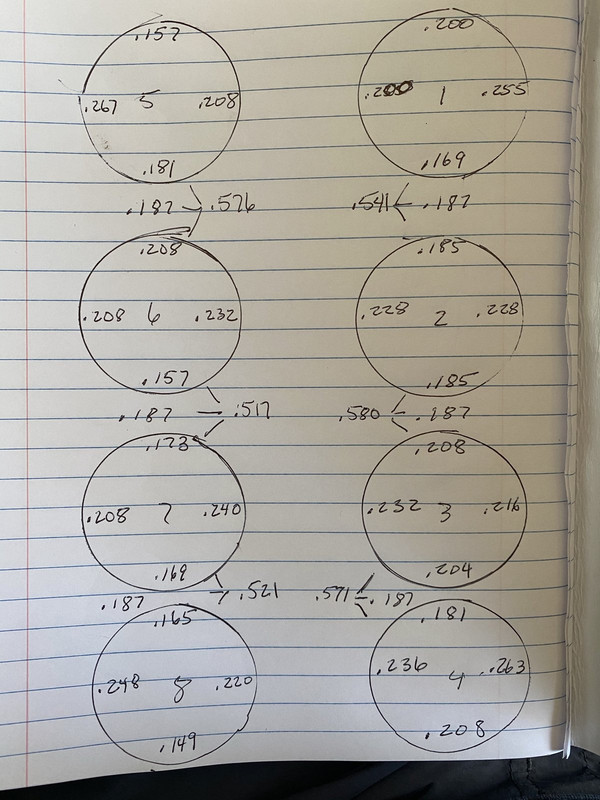 .157 .200
.267 5 .208 .200 1 .255
.181 .169
.187 .576 .541 .187
.208 .185
.208 6 .232 .228 2 .228
.157 .185
.187 .517 .580 .187
.173 .208
.208 7 .240 .232 3 .216
.169 .204
.187 .521 .571 .187
.165 .181
.248 8 .220 .236 4 .263
.149 .208